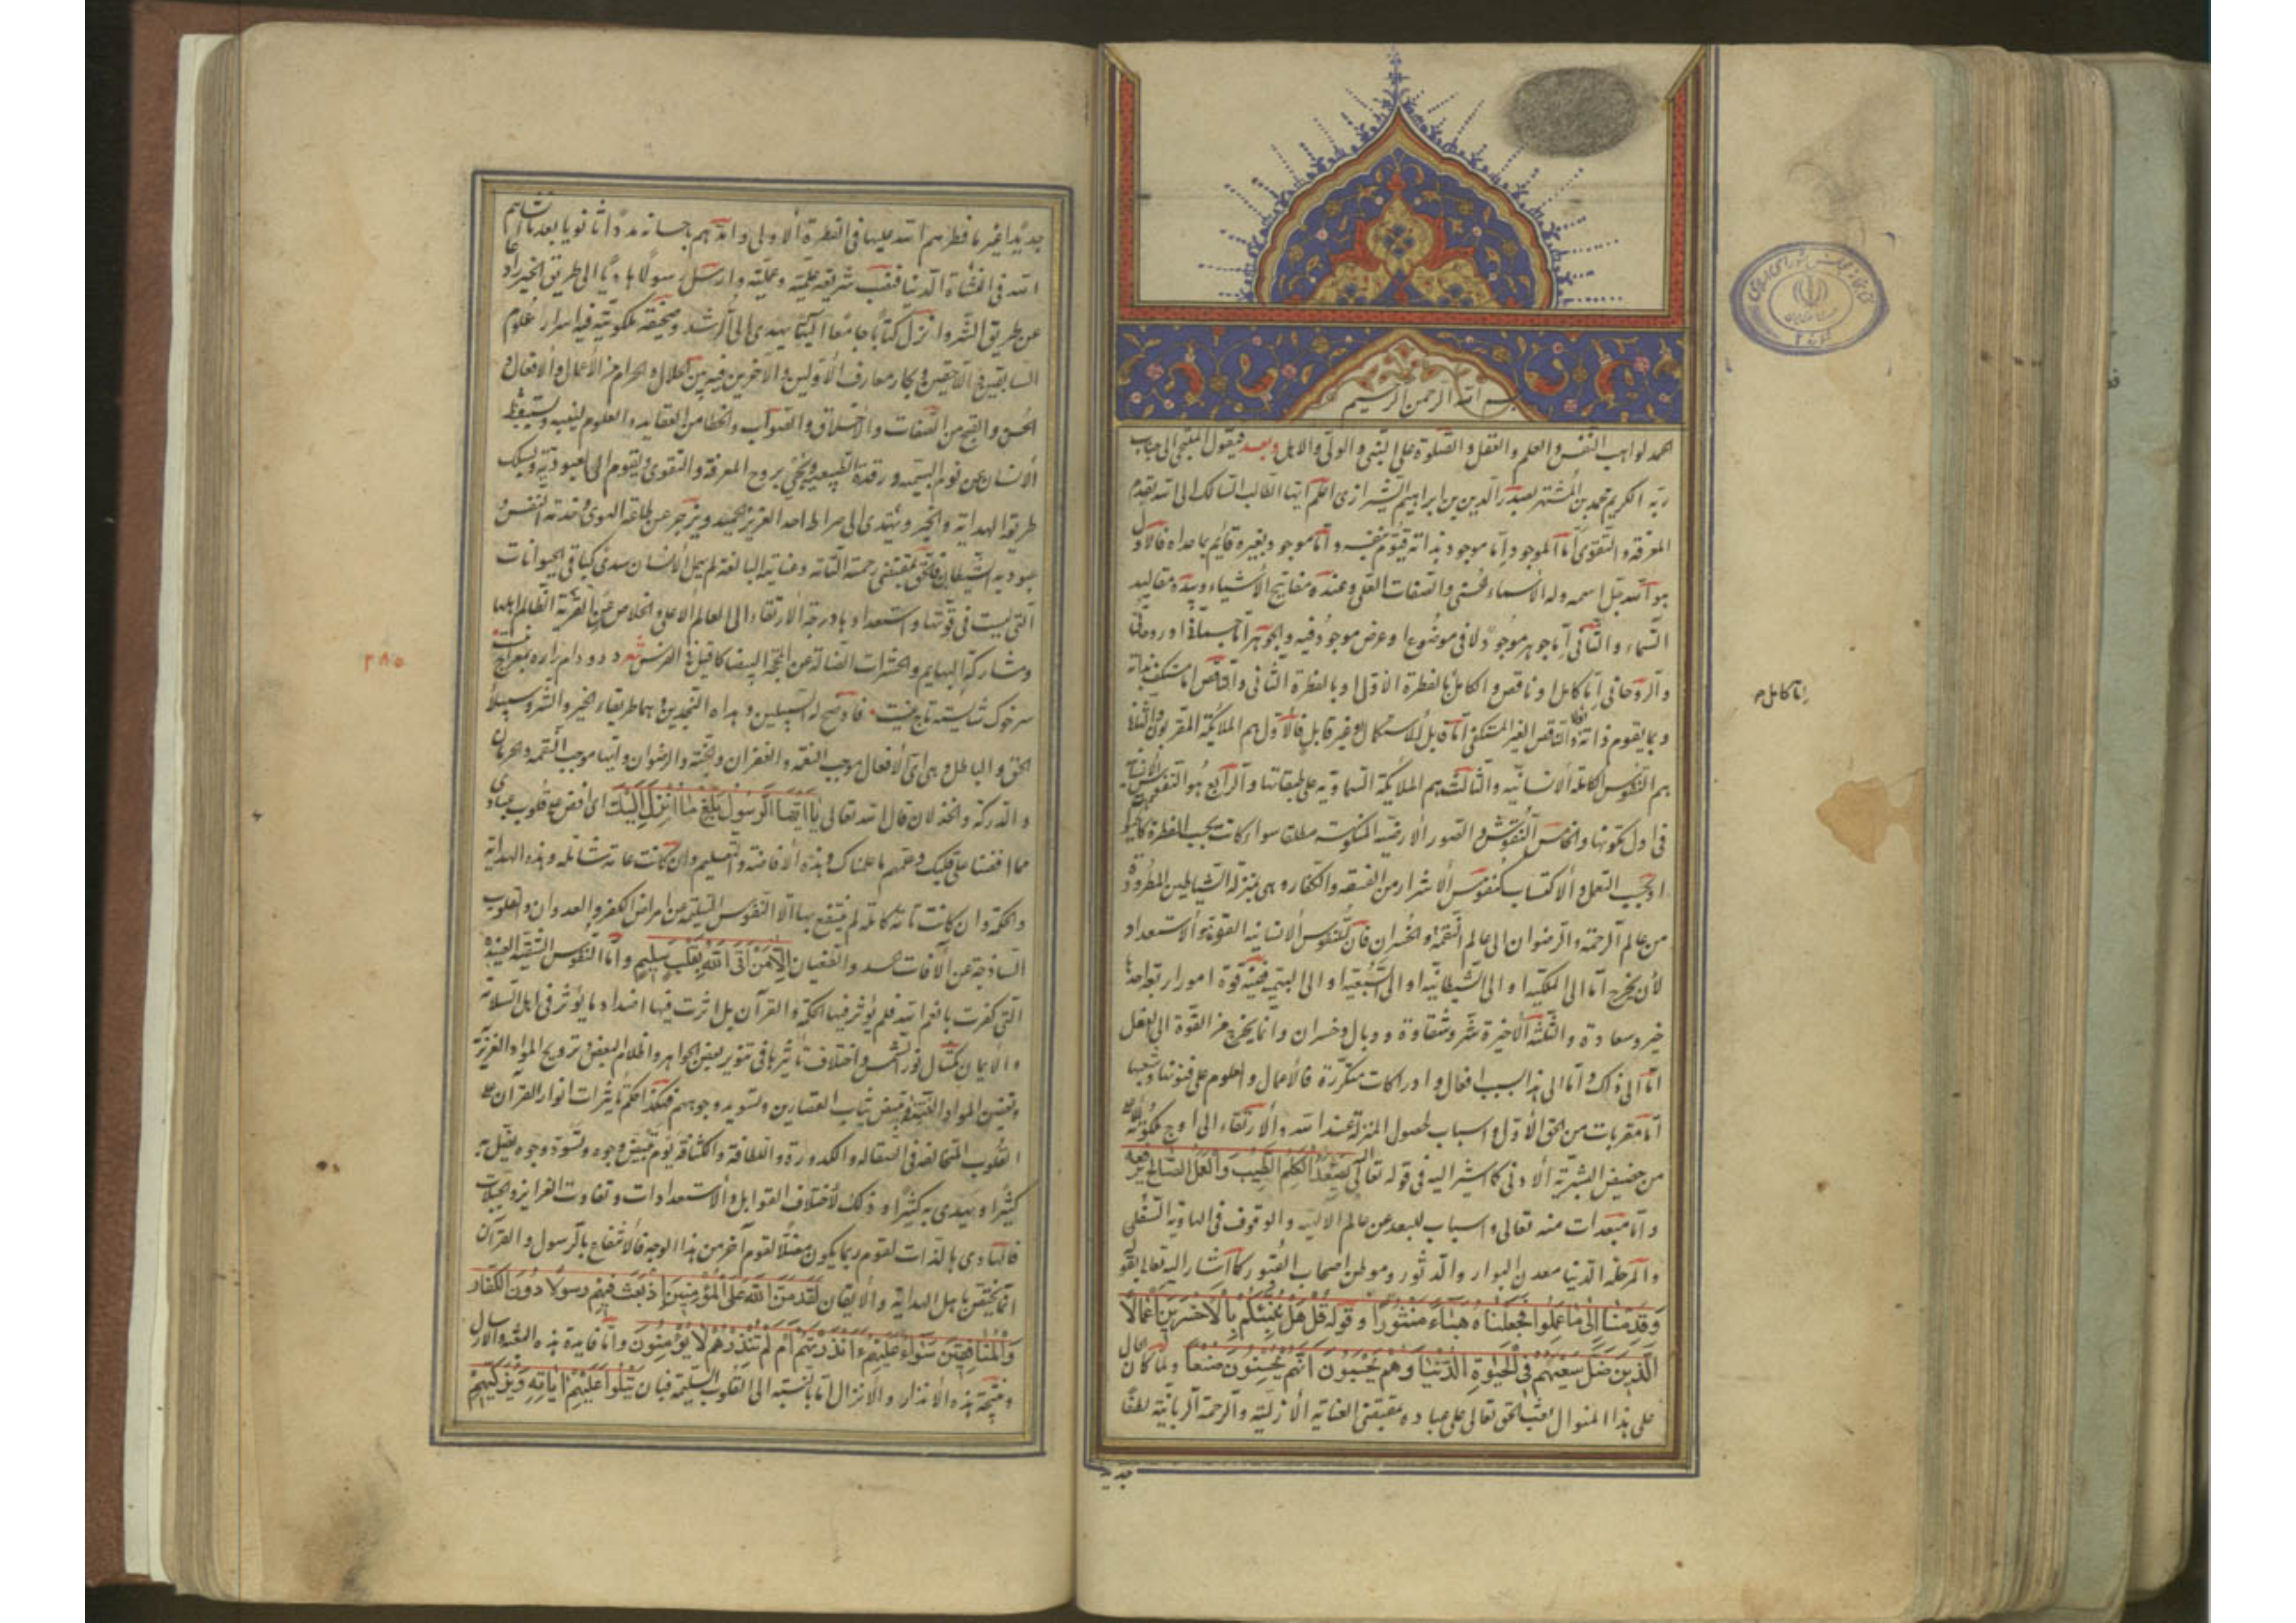 بسم الله الرحمن الرحیم
الحمد لواهب النفس والعلم والعقل والصلوة علی النبی والولی والاهل وبعد فیقول الملتجی الی جناب
ربه الکریم محمد بن المشتهر بصدر الدین بن ابراهیم الشیرازی اعلم ایها الطالب السالک الی الله بقدم
المعرفة والتقوی أنّ الموجود إمّا موجود بذاته قیّوم بنفسه و أمّا موجود بغیره قائم بما عداه فالأول
هو الله جلّ اسمه وله الأسماء الحسنی والصفات العلی وعنده مفاتیح الأشیاء وبیده مقالید
السماء والثانی إمّا جوهر موجود لا فی موضوع او عرض موجود فیه والجوهر إمّا جسمانی او روحانی
والروحانی إمّا کامل او ناقص والکامل بالفطرة الاولی او بالفطرة الثانی والناقص امّا مستکف بذاته
إمّا کامل م
وبما یقوم ذاته والناقص الغیر المستکفی امّا قابل للاستکمال وغیر قابل فالأول هم الملائکة المقربون والثانی
هم النفوس الکاملة الانسانیة والثالث هم الملائکة السماویة علی طبقاتها والرابع هو النفوس الانسانیة
فی اول تکونها والخامس النقوش والصور الارضیة المنکوسة مطلقا سواء کانت بحسب الفطرة کالحیوانات
او بحسب التعمل والاکتساب کنفوس الأشرار من الفسقة والکفار وهی بمنزلة الشیاطین المطرودة
من عالم الرحمة والرضوان الی عالم النقمة والخسران فان للنفوس الانسانیة القوة والاستعداد
لأن یخرج امّا الی الملکیة او الی الشیطانیة او الی السبعیة او الی البهیمیة ففیه قوة امور اربعة واحدها
خیر وسعادة والثلثة الأخیرة شر وشقاوة ووبال وخسران وانما یخرج من القوة الی الفعل
امّا الی ذاک وامّا الی هذا بسبب افعال وادراکات متکررة فالاعمال والعلوم علی فنونها وشعبها
امّا مقربات من الحق الأول واسباب لحصول المنزلة عند الله والارتقاء الی اوج ملکوته الأعلی
من حضیض البشریة الأدنی کما اشیر الیه فی قوله تعالی الیه یصعد الکلم الطیب والعمل الصالح یرفعه
وامّا مبعدات منه تعالی واسباب للبعد عن عالم الالهیة والوقوف فی الهاویة السفلی
والمرحلة الدنیا معدن البوار والدثور وموطن اصحاب القبور کما اشار الیه تعالی بقوله
وَقَدِمْنَا إِلَى مَا عَمِلُوا فَجَعَلْنَاهُ هَبَاءً مَنْثُورًا وقوله قُلْ هَلْ نُنَبِّئُكُمْ بِالْأَخْسَرِينَ أَعْمَالًا
الَّذِينَ ضَلَّ سَعْيُهُمْ فِي الْحَيٰوةِ الدُّنْيَا وَهُمْ يَحْسَبُونَ أَنَّهُمْ يُحْسِنُونَ صُنْعًا ولمّا کان الحال
علی هذا المنوال بعث الحق تعالی علی عباده بمقتضی العنایة الأزلیة والرحمة الربانیة لطفا
جدید
جدیداً غیر ما فطرهم الله علیها فی الفطرة الأولی وامدّهم باحسانه مدداً ثانویاً بعد ما انشأهم
الله فی النشأة الدنیا فنصب شریعة علمیة وعملیة وارسل رسولاً هادیاً الی طریق الخیر رادعا
عن طریق الشر وانزل کتاباً جامعاً الهیّاً یهدی الی الرشد وصحیفة ملکوتیة فیها اسرار علوم
السابقین واللاحقین وبحار معارف الأولین والآخرین فبین الحلال والحرام من الأعمال والافعال و
الحسن والقبیح من الصفات والاخلاق والصواب والخطا من العقاید والعلوم لینتبه ویستیقظ
الانسان عن نوم البهیمیة ورقدة الطبیعة ویحیی بروح المعرفة والتقوی ویقوم الی العبودیة ویسلک
طریق الهدایة والخیر ویهتدی الی صراط الله العزیز الحمید وینزجر عن طاعة الهوی وخدمة النفس و
عبودیة الشیطان فالحق بمقتضی رحمته التامة وعنایته البالغة لم یهمل الانسان سدی کباقی الحیوانات
التی لیست فی قوتها واستعدادها درجة الارتقاء الی العالم الاعلی والخلاص عن القریة الظالم اهلها
ومشارکة البهایم والحشرات الضالة عن المحجة البیضاء کما قیل فی الفرس شعر دد و دام را ره بمعراج نیست
۲۸۵
سر خوک شایسته تاج نیست فأوضح له السبیلین وهداه النجدین وهما طریقا الخیر والشر وسبیلا
الحق والباطل وهی ای الأفعال موجب النعمة والغفران والجنة والرضوان وایها موجب النقمة والحرمان
والدرکة والخذلان قال الله تعالی یَا أَیُّهَا الرَّسُولُ بَلِّغْ مَا أُنْزِلَ إِلَیْكَ ای افض علی قلوب عبادی
مما افضنا علی قلبک وعلمهم ما علمناک وهذه الافاضة والتعلیم وان کانت عامة شاملة وهذه الهدایة
والحکمة وان کانت تامة کاملة لم ینتفع بها الا النفوس السلیمة من امراض الکفر والعدوان والقلوب
الساذجة عن الآفات الحسد والطغیان إِلَّا مَنْ أَتَى اللَّهَ بِقَلْبٍ سَلِيمٍ وامّا النفوس الشقیة العنیدة
التی کفرت بأنعم الله فلم یؤثر فیها الحکمة والقرآن بل اثرت فیها اضداد ما یؤثر فی اهل السلامة
والایمان کمثال نور الشمس واختلاف تأثیرها فی تنویر بعض الجواهر واظلام البعض وترویح المواد العزیزة
وتعفین المواد الخبیثة وتبییض ثیاب القصارین وتسوید وجوههم فهکذا حکم تأثیرات انوار القرآن علی
القلوب المتخالفة فی الصقالة والکدورة واللطافة والکثافة یوم تبیض وجوه وتسود وجوه یضل به
کثیراً ویهدی به کثیراً وذلک لاختلاف القوابل والاستعدادات وتفاوت الغرایز والجبلات
فالهادی بالذات لقوم ربما یکون مضلاً لقوم آخر من هذا الوجه فالانتفاع بالرسول والقرآن
انما یختص باهل الهدایة والایقان لَقَدْ مَنَّ اللَّهُ عَلَى الْمُؤْمِنِينَ إِذْ بَعَثَ فِيهِمْ رَسُولًا دون الکفار
والمنافقین سَوَاءٌ عَلَيْهِمْ ءَأَنْذَرْتَهُمْ أَمْ لَمْ تُنْذِرْهُمْ لَا يُؤْمِنُونَ وامّا فایدة هذه البعثة والارسال
ونتیجة هذه الانذار والانزال امّا بالنسبة الی القلوب السلیمة فبأن یَتْلُوا عَلَیْهِمْ آیَاتِهِ وَیُزَکِّیهِمْ